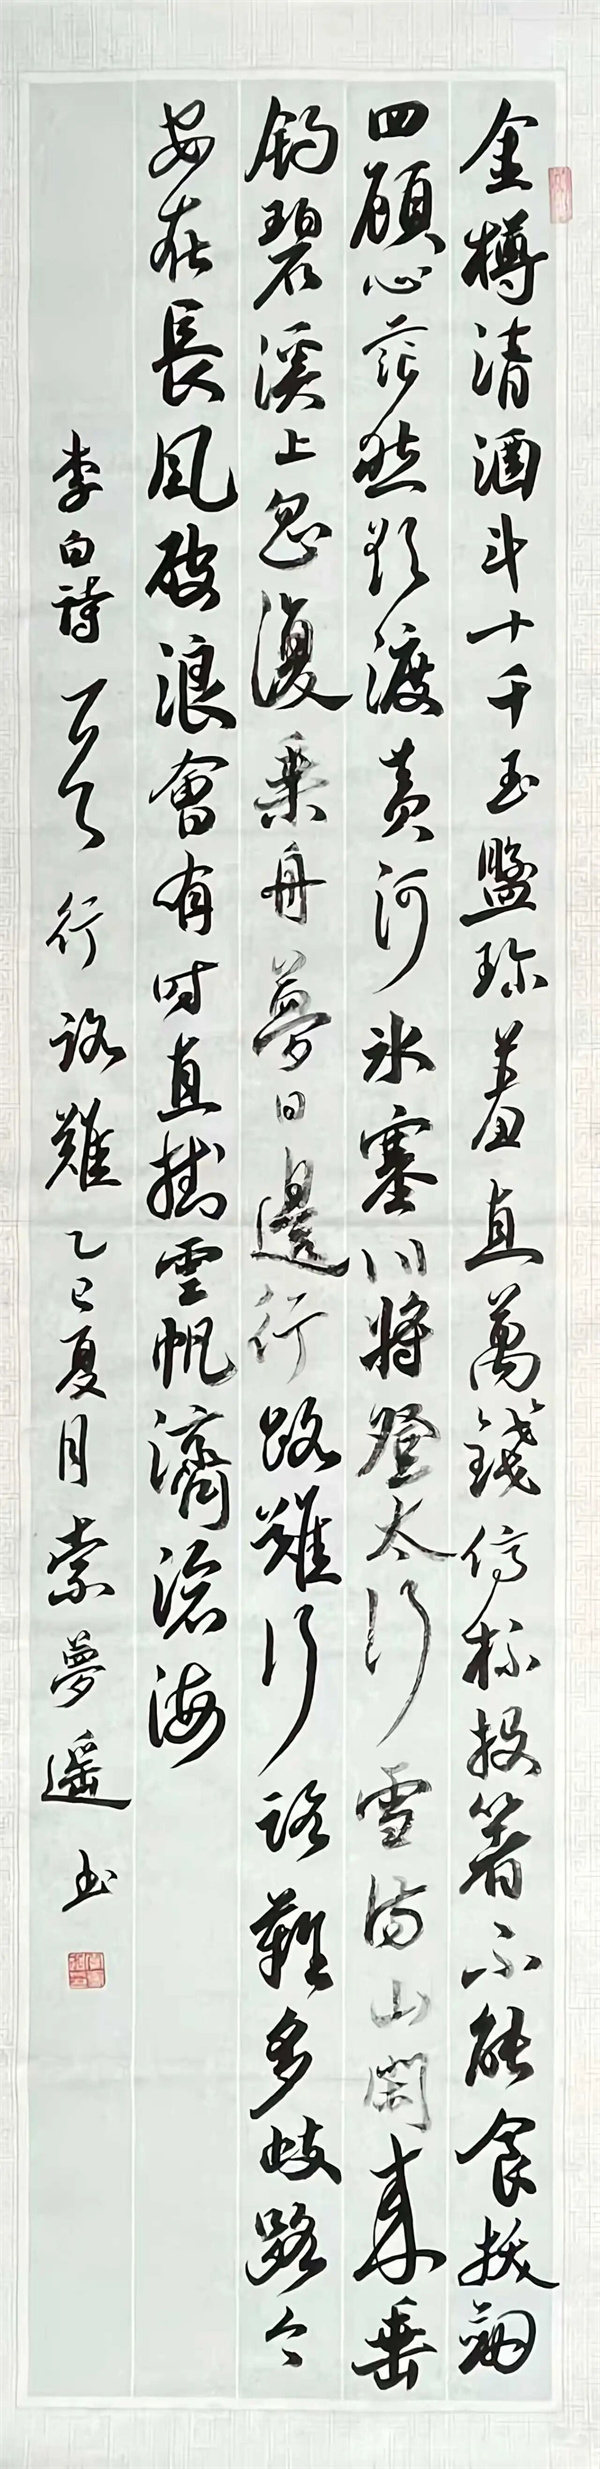 金樽清酒斗十千玉盤珍羞直萬錢停杯投箸不能食拔劍
四顧心茫然欲渡黄河冰塞川將登太行雪滿山閑来垂
釣碧溪上忽復乘舟夢日邊行路難行路難多歧路今
安在長風破浪會有時直掛雲帆濟滄海
李白詩一首行路難乙巳夏月索夢遥书